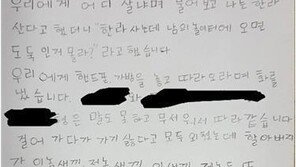 우리에게 어디 살냐며 물어보고 나는 한라
산다고 했더니 "한라사는데 남의놀이터에 오면
도둑인거 몰라?" 라고 했습니다
우리에게 핸드폰 가방을 놓고 따라오라며 화를
냈습니다
은 말도 못하고 무서워서 따라갔습니다
걸어 가다가 가기 싫다고 모두 외쳤는데 할아버지